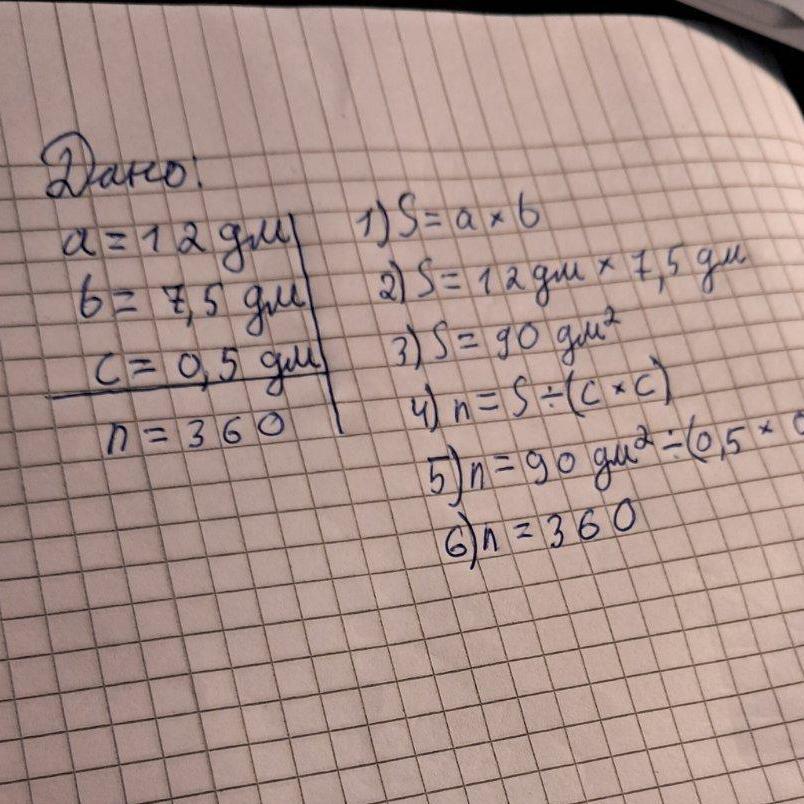 Дано:
a = 12 дм
b = 7,5 дм
c = 0,5 дм
n = 360
1) S = a × b
2) S = 12 дм × 7,5 дм
3) S = 90 дм²
4) n = S ÷ (c × c)
5) n = 90 дм² ÷ (0,5 × 0
6) n = 360